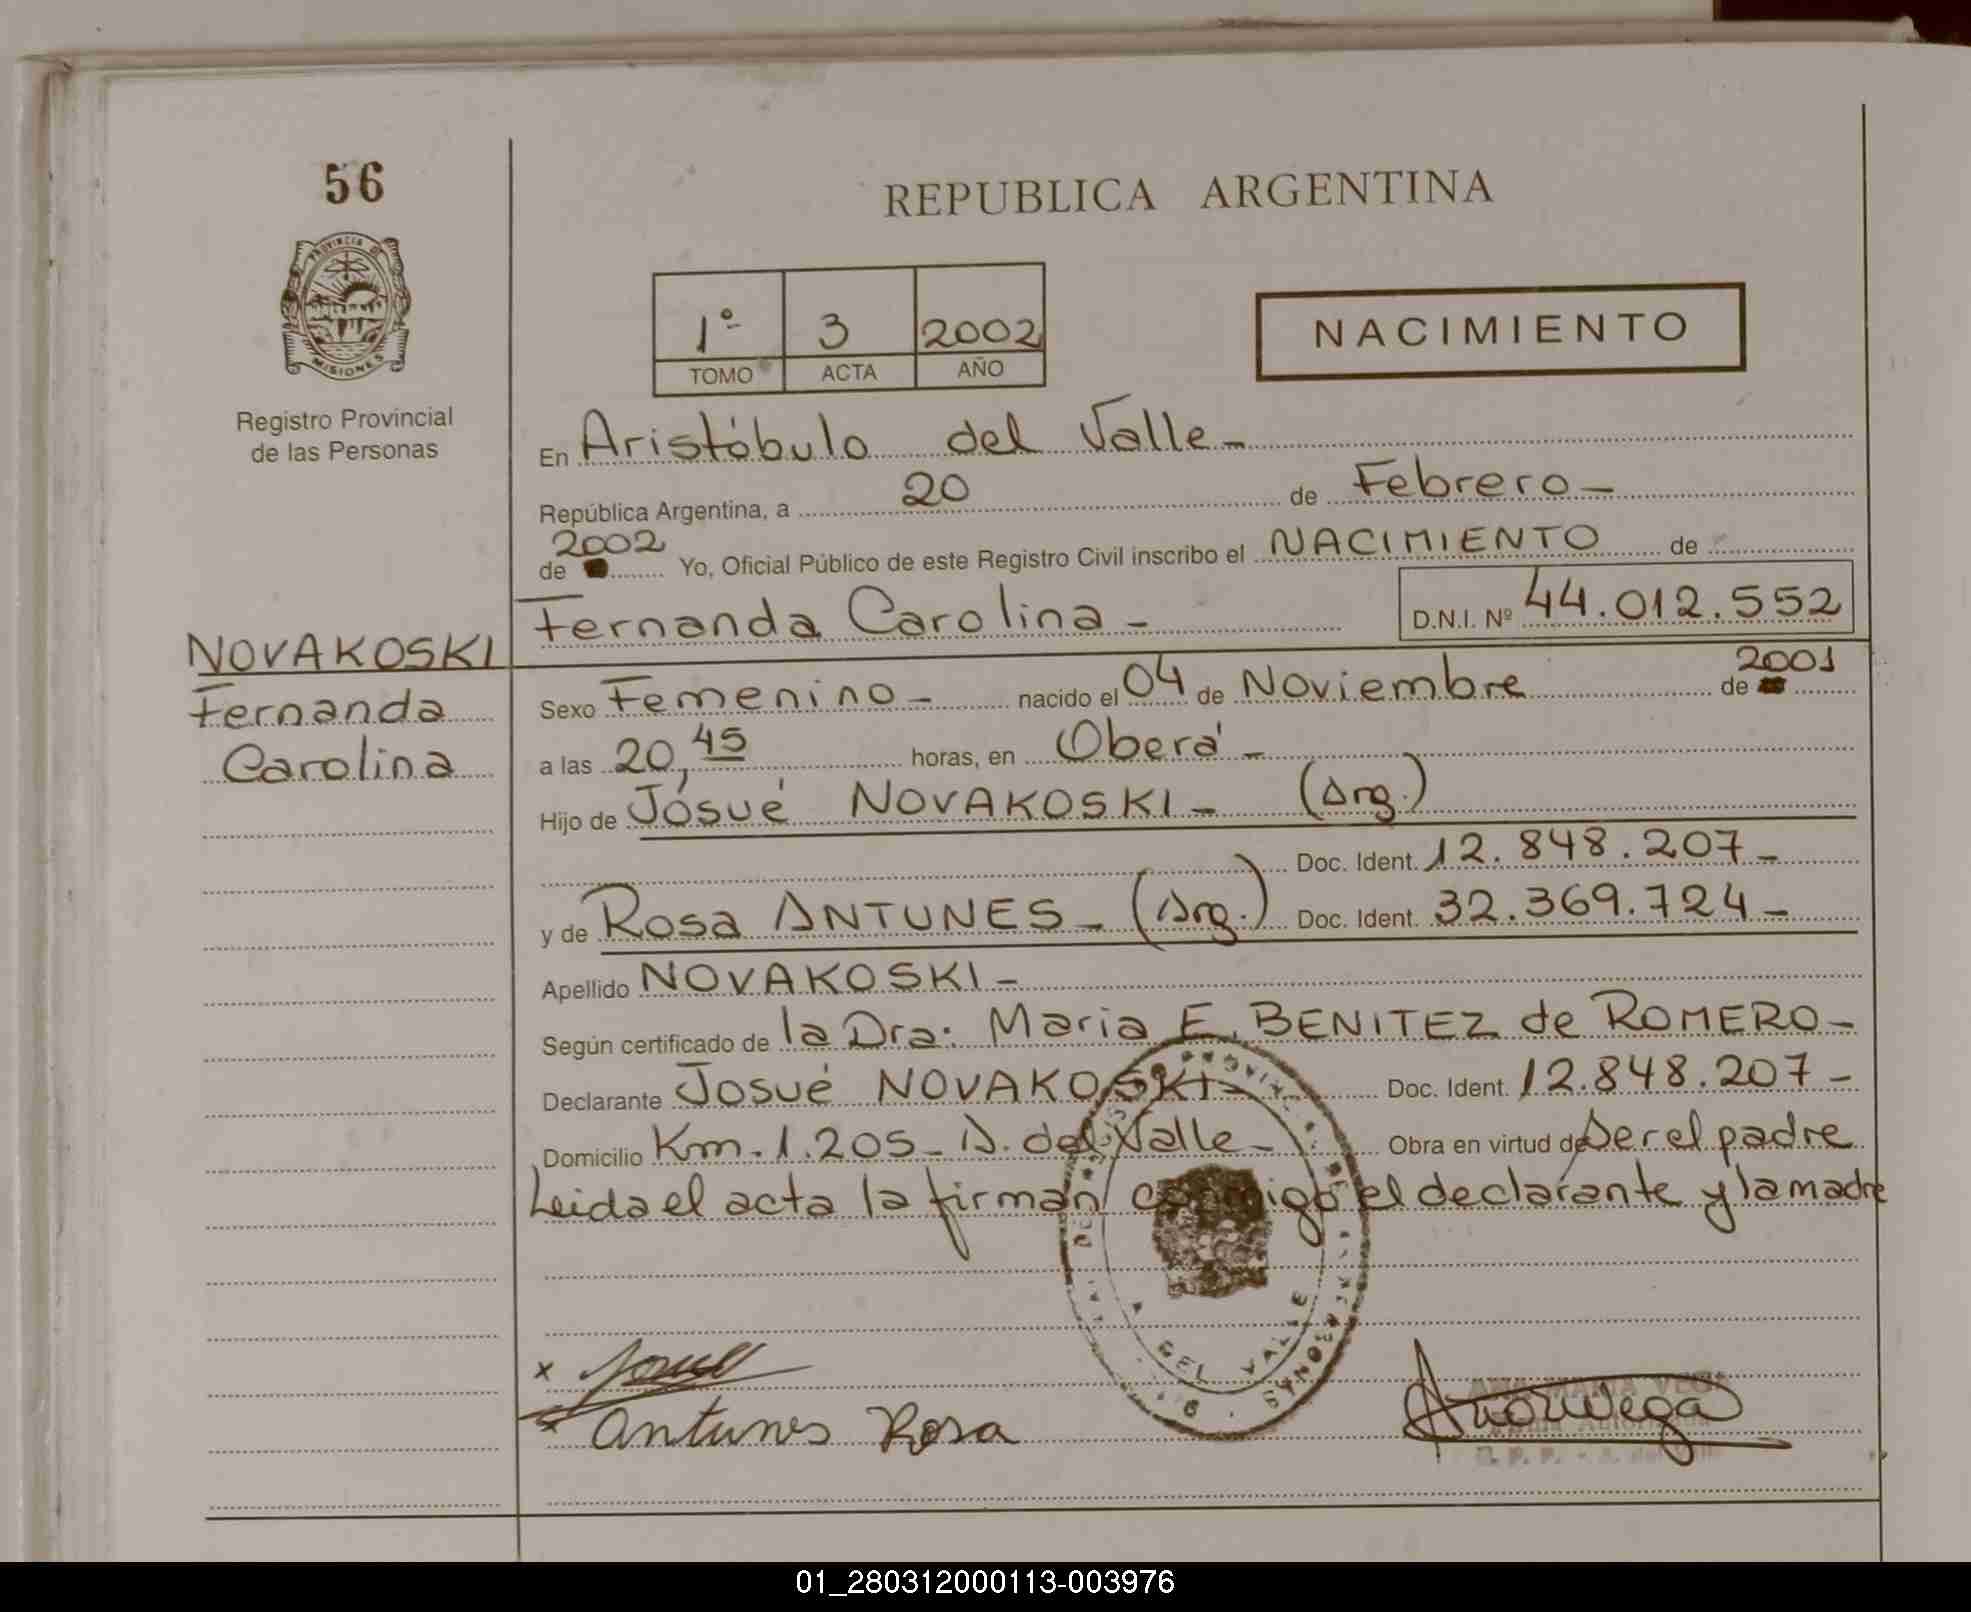 56
REPUBLICA ARGENTINA
PROVINCIA DE
MISIONES
Registro Provincial
de las Personas
1º 3 2002
TOMO ACTA AÑO
NACIMIENTO
En Aristóbulo del Valle-
República Argentina, a 20 de Febrero-
2002
de Yo, Oficial Público de este Registro Civil inscribo el NACIMIENTO de
Fernanda Carolina- D.N.I. Nº 44.012.552
NOVAKOSKI
Fernanda
Carolina
2001
Sexo Femenino- nacido el 04 de Noviembre de
a las 20,45 horas, en Oberá-
Hijo de Josué NOVAKOSKI- (Arg.)
Doc. Ident. 12.848.207-
y de Rosa ANTUNES- (Arg.) Doc. Ident. 32.369.724-
Apellido NOVAKOSKI-
Según certificado de la Dra: Maria E. BENITEZ de ROMERO-
Declarante Josué NOVAKOSKI- Doc. Ident. 12.848.207-
Domicilio Km. 1.205- A. del Valle- Obra en virtud de Ser el padre
Leida el acta la firman conmigo el declarante y la madre
DEL VALLE
x Josue
x Antunes Rosa
ANA MARIA VEGA
01_280312000113-003976